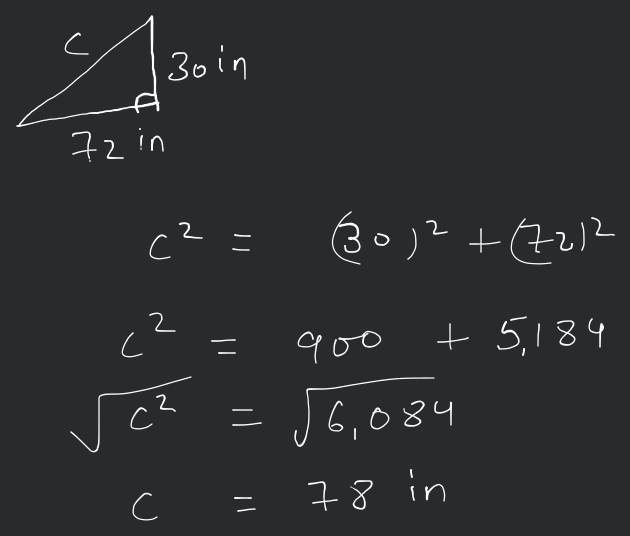 c
30 in
72 in
c² = (30)² + (72)²
c² = 900 + 5,184
√c² = √6,084
c = 78 in